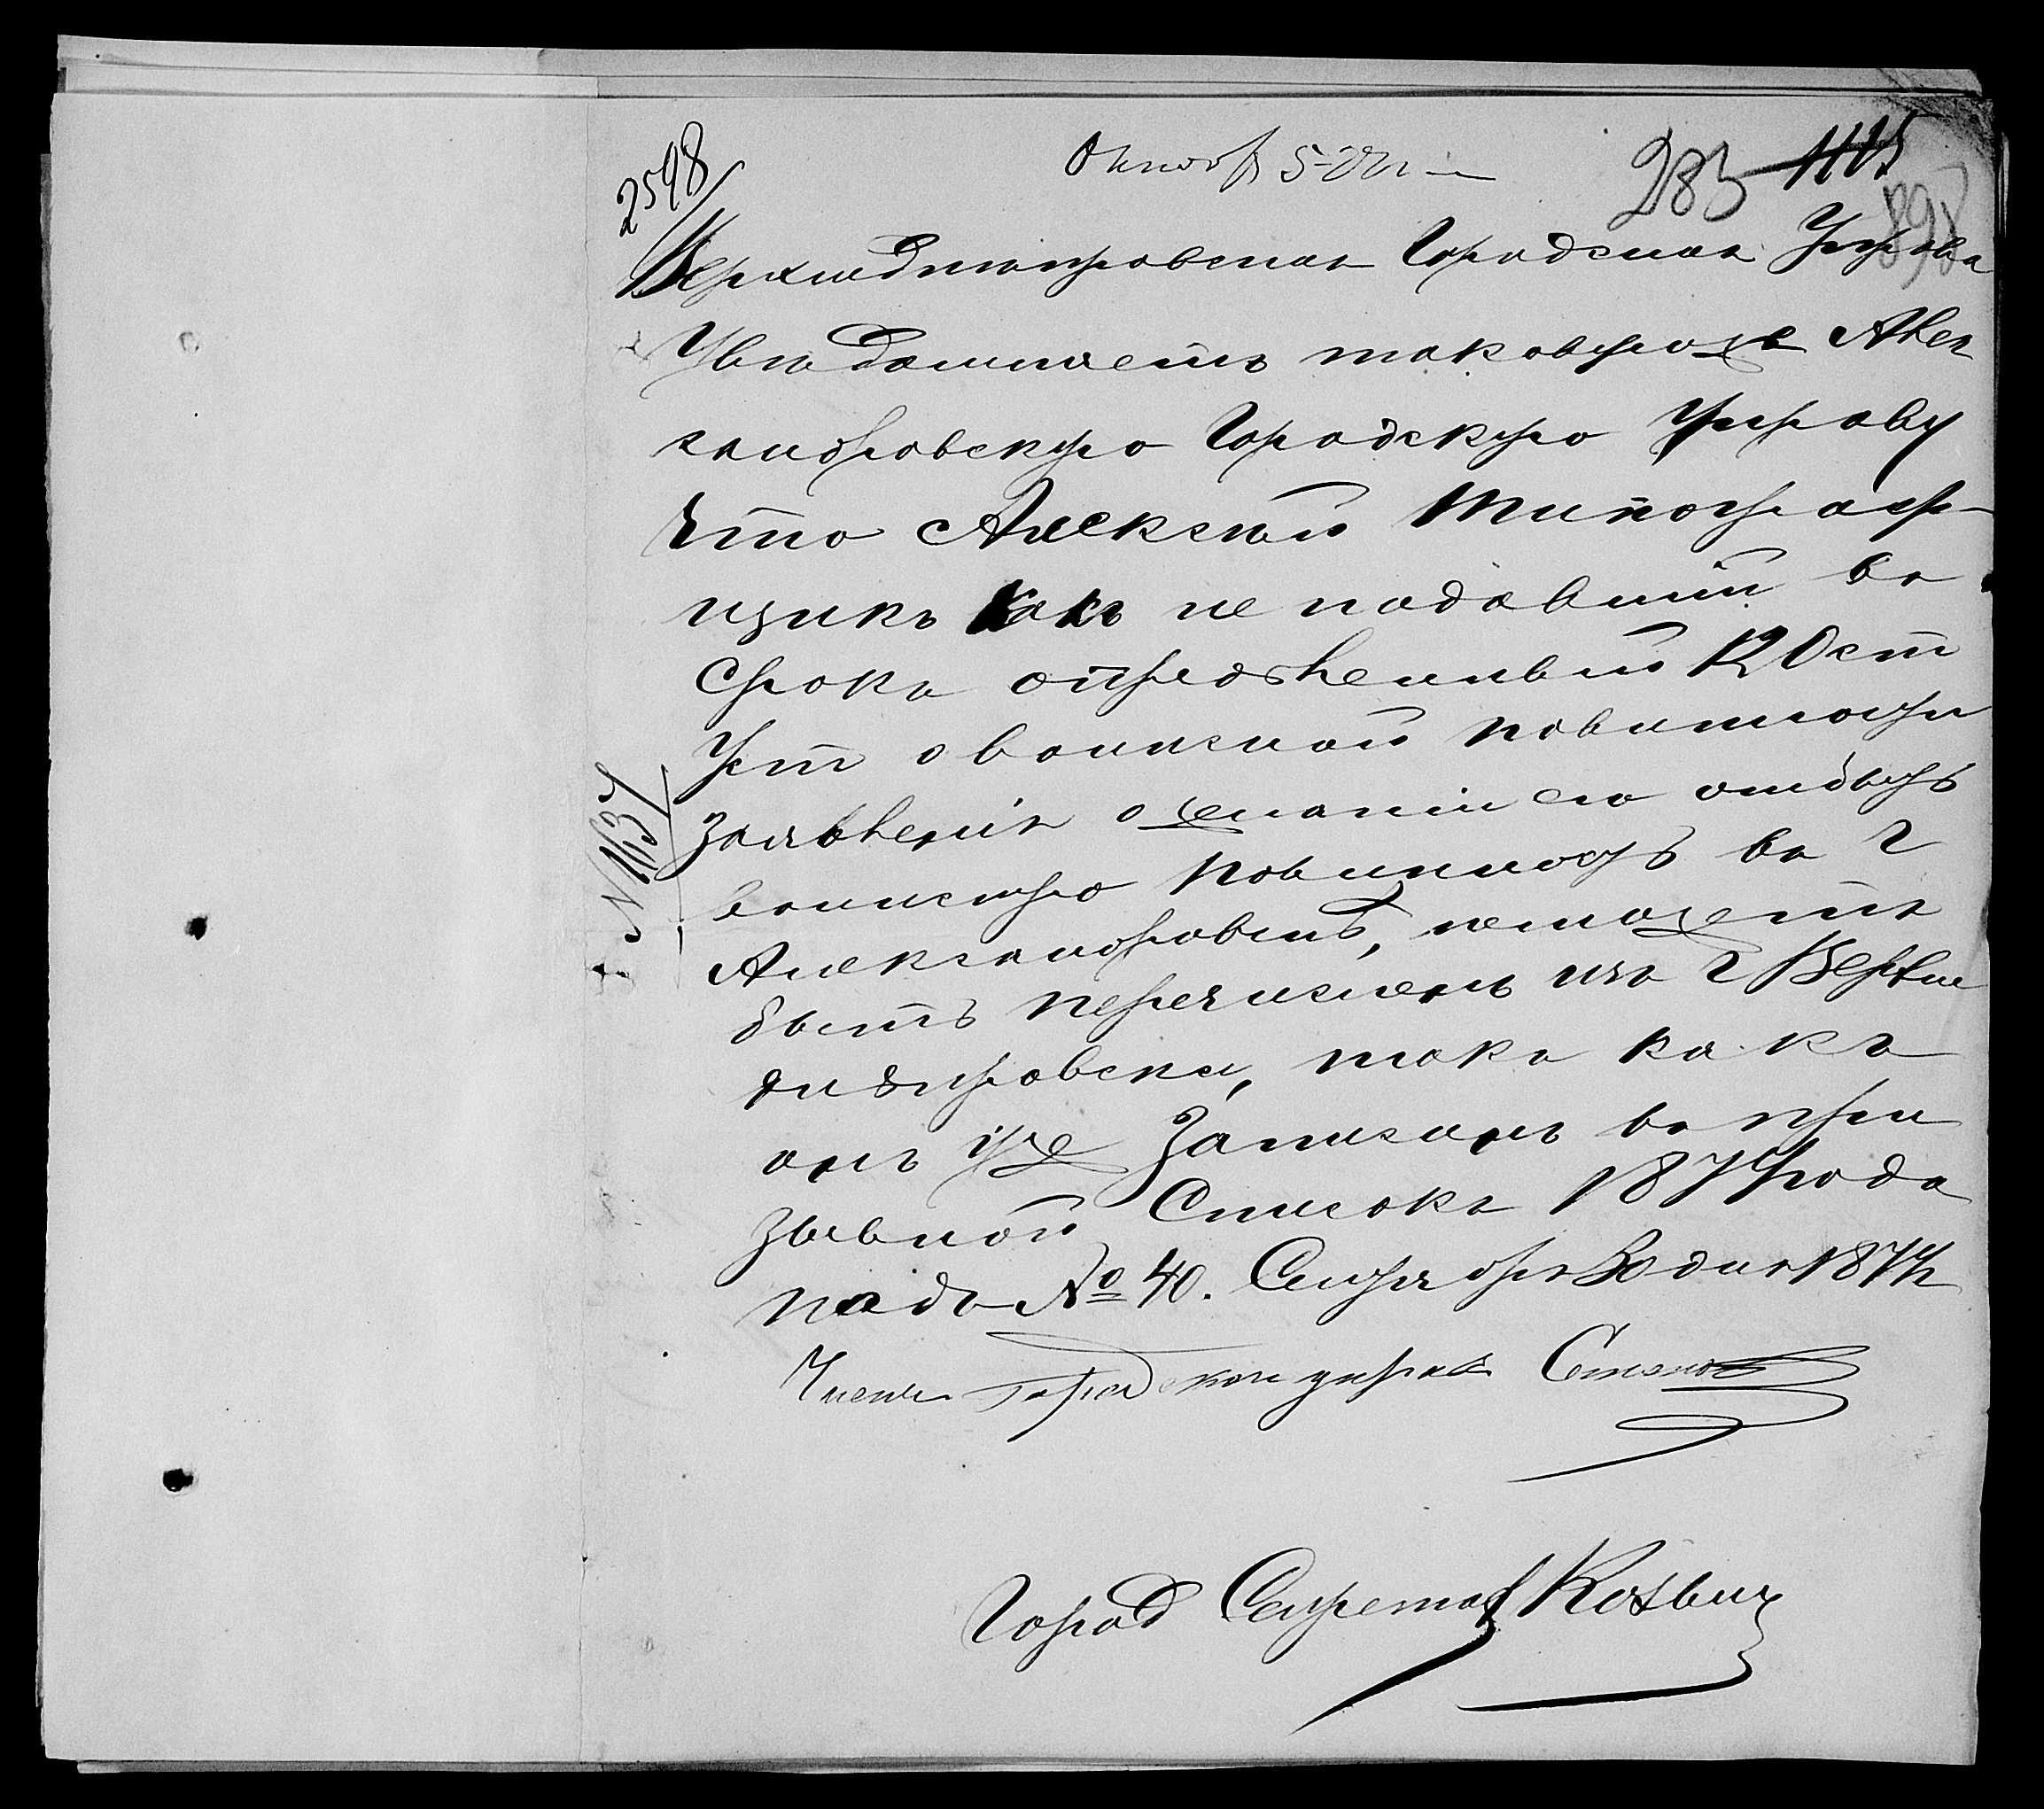 Октября 5 дня
2598
283 1115
898
Верхнеднепровская Городская Управа
Уведомляетъ таковую же Алек
сандровскую Городскую Управу
что Алексей Типограф-
щикъ какъ не подавший въ
срокъ определенный 120 ст
Уст о воинской повинности
заявления о желании его отбыть
воинскую повинность въ г
Александровскъ, неможетъ
быть перечисленъ изъ г Верхне
днѣпровска, такъ какъ
онъ уже записанъ въ при
зывной Списокъ 1874 года
подъ № 40. Сентября 30 дня 1874
№ 1637
Членъ городской управы
Город Секретар